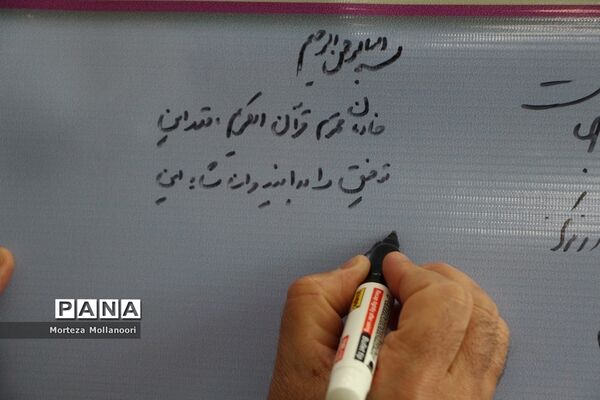 بسم الله الرحمن الرحیم
خادمان محترم قرآن الکریم، قدر این
توفیق را بدانید و ان شاء الله این
PANA
Morteza Mollanoori